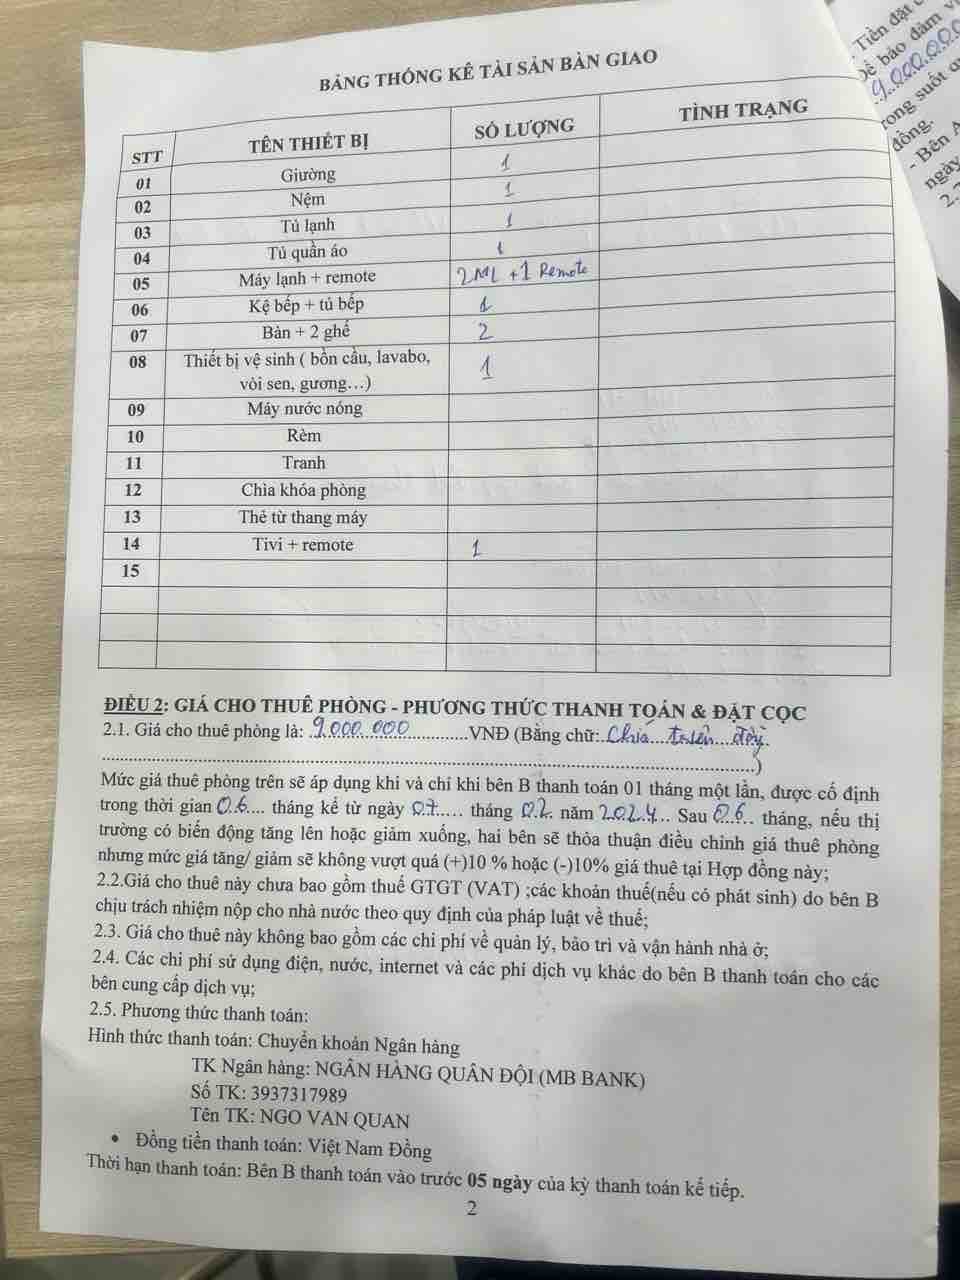 BẢNG THỐNG KÊ TÀI SẢN BÀN GIAO
STT TÊN THIẾT BỊ SỐ LƯỢNG TÌNH TRẠNG
01 Giường 1
02 Nệm 1
03 Tủ lạnh 1
04 Tủ quần áo 1
05 Máy lạnh + remote 2 ML + 1 Remote
06 Kệ bếp + tủ bếp 1
07 Bàn + 2 ghế 2
08 Thiết bị vệ sinh ( bồn cầu, lavabo, 1
vòi sen, gương…)
09 Máy nước nóng
10 Rèm
11 Tranh
12 Chìa khóa phòng
13 Thẻ từ thang máy
14 Tivi + remote 1
15
ĐIỀU 2: GIÁ CHO THUÊ PHÒNG - PHƯƠNG THỨC THANH TOÁN & ĐẶT CỌC
2.1. Giá cho thuê phòng là: 9.000.000 VNĐ (Bằng chữ: Chín triệu đồng
)
Mức giá thuê phòng trên sẽ áp dụng khi và chỉ khi bên B thanh toán 01 tháng một lần, được cố định
trong thời gian 06 tháng kể từ ngày 07 tháng 02 năm 2024. Sau 06 tháng, nếu thị
trường có biến động tăng lên hoặc giảm xuống, hai bên sẽ thỏa thuận điều chỉnh giá thuê phòng
nhưng mức giá tăng/ giảm sẽ không vượt quá (+)10 % hoặc (-)10% giá thuê tại Hợp đồng này;
2.2.Giá cho thuê này chưa bao gồm thuế GTGT (VAT) ;các khoản thuế(nếu có phát sinh) do bên B
chịu trách nhiệm nộp cho nhà nước theo quy định của pháp luật về thuế;
2.3. Giá cho thuê này không bao gồm các chi phí về quản lý, bảo trì và vận hành nhà ở;
2.4. Các chi phí sử dụng điện, nước, internet và các phí dịch vụ khác do bên B thanh toán cho các
bên cung cấp dịch vụ;
2.5. Phương thức thanh toán:
Hình thức thanh toán: Chuyển khoản Ngân hàng
TK Ngân hàng: NGÂN HÀNG QUÂN ĐỘI (MB BANK)
Số TK: 3937317989
Tên TK: NGO VAN QUAN
• Đồng tiền thanh toán: Việt Nam Đồng
Thời hạn thanh toán: Bên B thanh toán vào trước 05 ngày của kỳ thanh toán kế tiếp.
2
Tiền đặt
Để bảo đảm
9.000.000
trong suốt
đồng.
- Bên A
ngày
2.